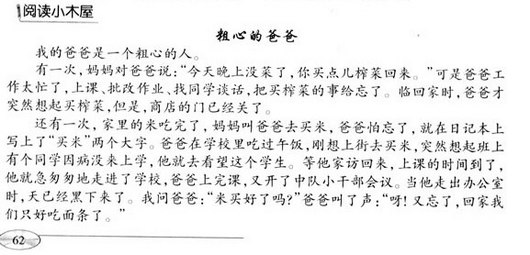 阅读小木屋
粗心的爸爸
我的爸爸是一个粗心的人。
有一次,妈妈对爸爸说:“今天晚上没菜了,你买点儿榨菜回来。”可是爸爸工
作太忙了,上课、批改作业、找同学谈话,把买榨菜的事给忘了。临回家时,爸爸才
突然想起买榨菜,但是,商店的门已经关了。
还有一次,家里的米吃完了,妈妈叫爸爸去买米,爸爸怕忘了,就在日记本上
写上了“买米”两个大字。爸爸在学校里吃过午饭,刚想上街去买米,突然想起班上
有个同学因病没来上学,他就去看望这个学生。等他家访回来,上课的时间到了,
他就急匆匆地走进了学校,爸爸上完课,又开了中队小干部会议。当他走出办公室
时,天已经黑下来了。我问爸爸:“米买好了吗?”爸爸叫了声:“呀!又忘了,回家我
们只好吃面条了。”
62